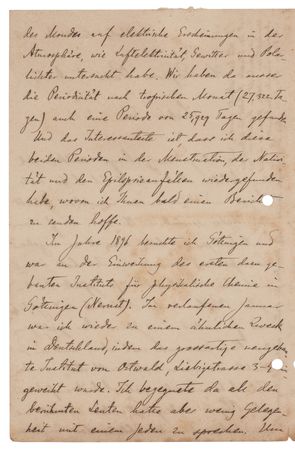 des Mondes auf elektrische Erscheinungen in der
Atmosphäre, wie Luftelektricität, Gewitter und Pola
lichter untersucht habe. Wir haben da ausser
die Periodicität nach tropischen Monat (27,322 Ta-
gen) auch eine Periode von 25,929 Tagen gefunden
Und das Interessanteste ist dass ich diese
beiden Perioden in der Menstruation, der Nativi-
tät und den Epilepsieanfällen wiedergefunden
habe, wovon ich Ihnen bald einen Bericht
zu senden hoffe.
Im Jahre 1896 besuchte ich Göttingen und
war an der Einweihung des ersten dazu ge-
bauten Instituts für physikalische Chemie in
Göttingen (Nernst). Im verlaufenen Januar
war ich wieder zu einem ähnlichen Zweck
in Deutschland, indem das grossartige neu gebau-
te Institut von Ostwald, Linnéstrasse 3-4 ein
geweiht wurde. Ich begegnete da all den
berühmten Leuten hatte aber wenig Gelegen-
heit mit einem Jeden zu sprechen. Um